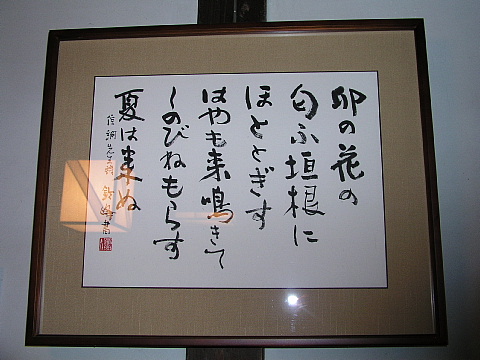 卯の花の
匂ふ垣根に
ほととぎす
はやも来鳴きて
しのびねもらす
夏は来ぬ
信綱先生詩